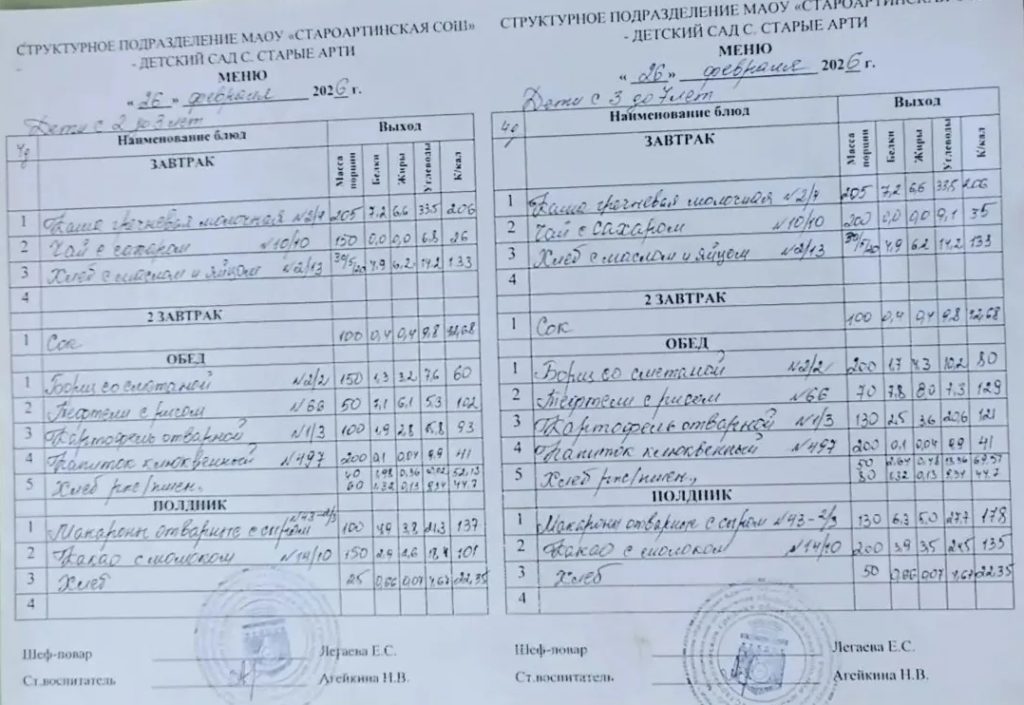 СТРУКТУРНОЕ ПОДРАЗДЕЛЕНИЕ МАОУ «СТАРОАРТИНСКАЯ СОШ»
- ДЕТСКИЙ САД С. СТАРЫЕ АРТИ
МЕНЮ
« 26 » февраля 2026 г.
Дети с 2 до 3 лет
Наименование блюд Выход
ЗАВТРАК Масса порции Белки Жиры Углеводы К/кал
1 Каша гречневая молочная №2/4 205 7,2 6,6 33,5 206
2 Чай с сахаром №10/10 150 0,0 0,0 6,8 26
3 Хлеб с маслом и яйцом №2/13 30/5/20 4,9 6,2 14,2 133
4
2 ЗАВТРАК
1 Сок 100 0,4 0,4 9,8 42,68
ОБЕД
1 Борщ со сметаной №2/2 150 1,3 3,2 7,6 60
2 Тефтели с рисом №66 50 7,1 6,1 5,3 102
3 Картофель отварной №1/3 100 1,9 2,8 15,8 93
4 Напиток клюквенный №497 200 0,1 0,04 9,9 41
5 Хлеб рж/пшен. 40 1,98 0,36 52,13
60 1,32 0,13 9,34 44,7
ПОЛДНИК
1 Макароны отварные с сыром №43-2/3 100 4,9 3,8 21,3 137
2 Какао с молоком №14/10 150 2,9 2,6 101
3 Хлеб 25 0,66 0,07 4,67 22,35
4
Шеф-повар Легаева Е.С.
Ст.воспитатель Агейкина Н.В.
СТРУКТУРНОЕ ПОДРАЗДЕЛЕНИЕ МАОУ «СТАРОАРТИНСКАЯ
- ДЕТСКИЙ САД С. СТАРЫЕ АРТИ
МЕНЮ
« 26 » февраля 2026 г.
Дети с 3 до 7 лет
Наименование блюд Выход
ЗАВТРАК Масса порции Белки Жиры Углеводы К/кал
1 Каша гречневая молочная №2/4 205 7,2 6,6 33,5 206
2 Чай с сахаром №10/10 200 0,0 0,0 9,1 35
3 Хлеб с маслом и яйцом №2/13 30/5/20 4,9 6,2 14,2 133
4
2 ЗАВТРАК
1 Сок 100 0,4 0,4 9,8 42,68
ОБЕД
1 Борщ со сметаной №2/2 200 1,7 4,3 10,2 80
2 Тефтели с рисом №66 70 7,8 8,0 7,3 129
3 Картофель отварной №1/3 130 2,5 3,6 20,6 121
4 Напиток клюквенный №497 200 0,1 0,04 9,9 41
5 Хлеб рж/пшен., 50 2,64 0,48 13,36 69,57
80 1,32 0,13 9,34 44,7
ПОЛДНИК
1 Макароны отварные с сыром №43-2/3 130 6,3 5,0 27,7 178
2 Какао с молоком №14/10 200 3,9 3,5 24,5 135
3 Хлеб 50 0,66 0,07 4,67 22,35
4
Шеф-повар Легаева Е.С.
Ст.воспитатель Агейкина Н.В.